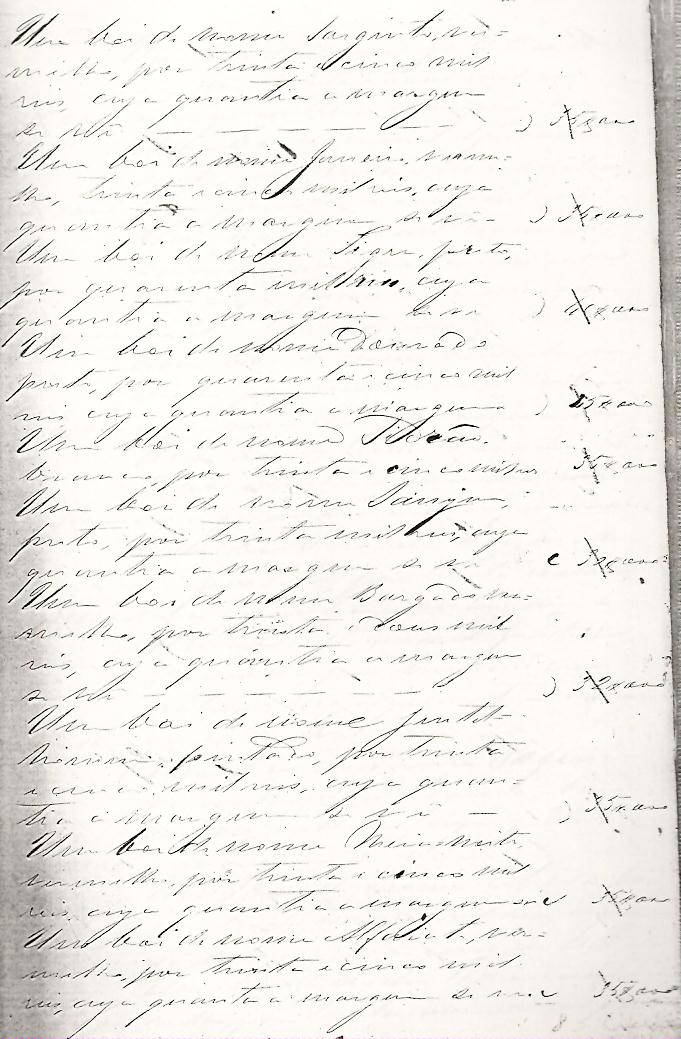 Um boi de nome Sargento, ver=
melho, por trinta e cinco mil
reis, cuja quantia a margem
se vê — — — — — ) 35$000
Um boi de nome Janeiro, verme=
lho, trinta e cinco mil reis, cuja
quantia a margem se vê — ) 35$000
Um boi de nome Tigre, preto,
por quarenta mil reis, cuja
quantia a margem se vê ) 40$000
Um boi de nome Dourado
preto, por quarenta e cinco mil
reis cuja quantia a margem ) 45$000
Um boi de nome
branco, por trinta e cinco mil reis 35$000
Um boi de nome
preto, por trinta mil reis, cuja
quantia a margem se vê
Um boi de nome Bargado
por trinta e dous mil
reis, cuja quantia a margem
se vê — — — — — ) 32$000
Um boi de nome Gentil
homem, pintado, por trinta
e cinco mil reis, cuja quan=
tia a margem se vê — ) 35$000
Um boi de nome
vermelho, por trinta e cinco mil
reis, cuja quantia a margem se vê 35$000
Um boi de nome Alfaiate, ver=
melho, por trinta e cinco mil
reis, cuja quantia a margem se vê 35$000